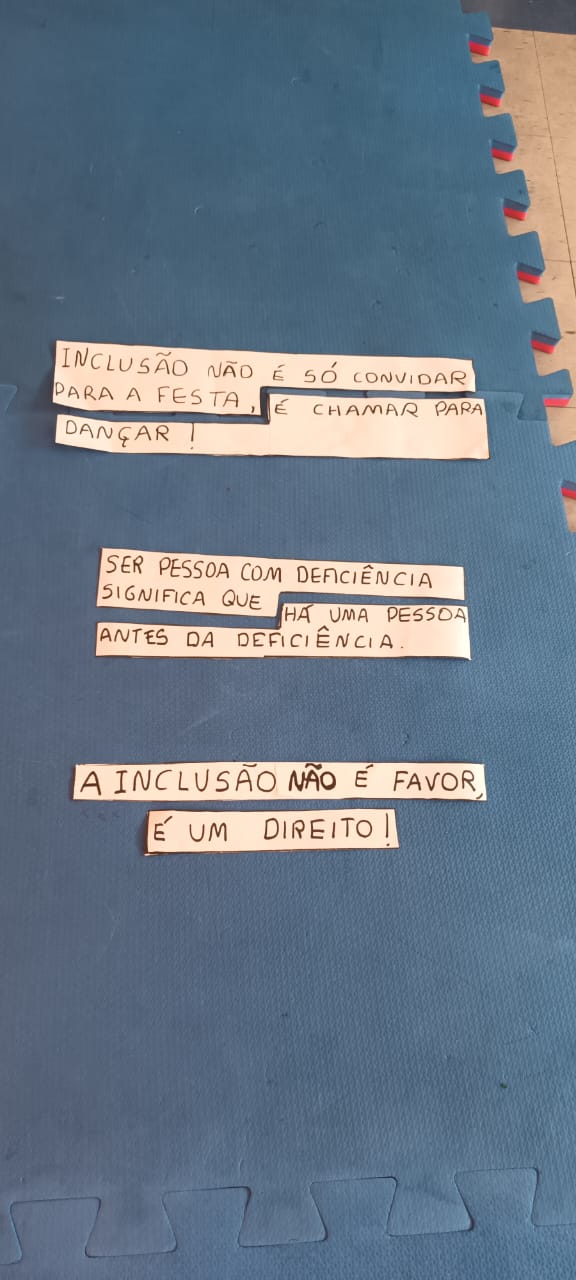 INCLUSÃO NÃO É SÓ CONVIDAR
PARA A FESTA, É CHAMAR PARA
DANÇAR !
SER PESSOA COM DEFICIÊNCIA
SIGNIFICA QUE HÁ UMA PESSOA
ANTES DA DEFICIÊNCIA.
A INCLUSÃO NÃO É FAVOR,
É UM DIREITO!